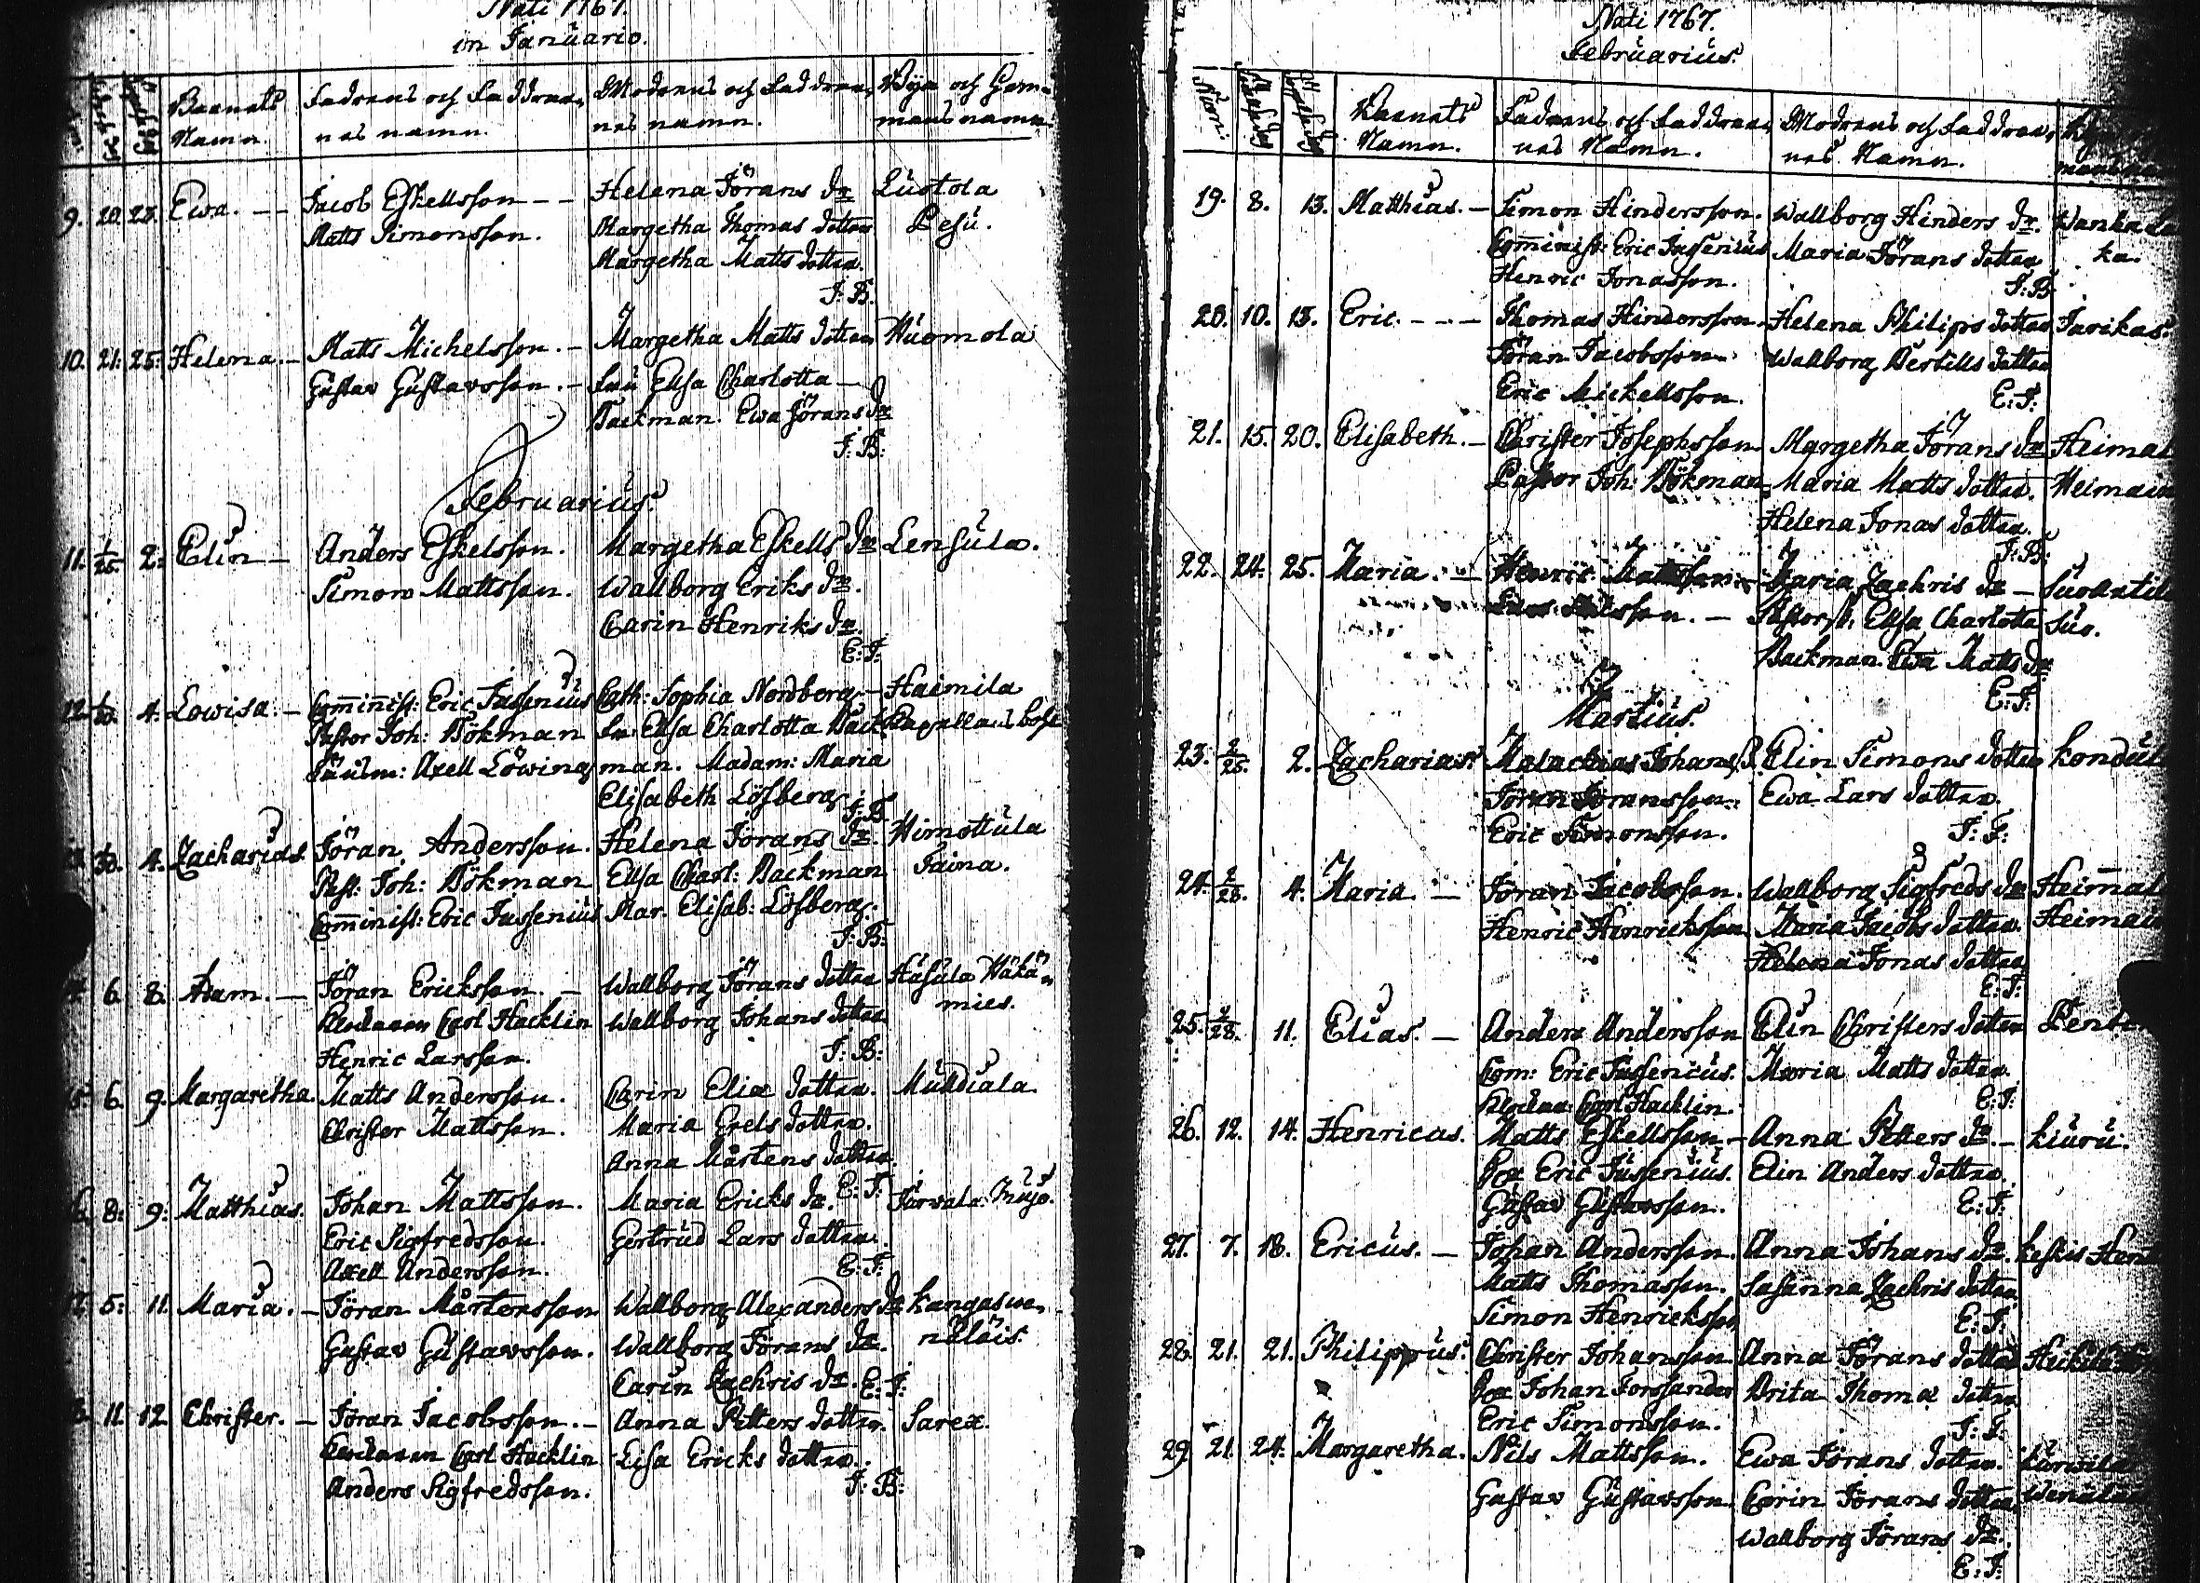 Nati 1767.
in Januario.
Barnets Namn.
Fadrens och Faddrarnes namn.
Modrens och Faddrarnes namn.
Byn och Hemmans namn.
9. 20. 23. Ewa. - - Jacob Eskellsson - - Helena Jörans dr Luotola
Matts Simonsson. Margetha Thomas dotter Pesu.
Margetha Matts dotter.
J: B.
10. 21. 25. Helena. - Matts Michelsson. - Margetha Matts dotter Huomola
Gustav Gustavsson. - Fru Elsa Charlotta
Backman. Ewa Jörans dr
J: B:
Februarius.
11. 1/25. 2. Elin - Anders Eskelsson. Margetha Eskells dr Lensula.
Simon Mattsson. Wallborg Eriks dr.
Carin Henriks dr.
E: J:
12. 4. Lowisa. - Comminist: Eric Jussenius Cath: Sophia Nordberg - Haimila
Pastor Joh: Bökman Fru Elsa Charlotta Back Capellans bohl
Axell Löwing man. Madam: Maria
Elisabeth Löfberg.
J: B.
4. Zacharias. Jöran Andersson. Helena Jörans dr. Himottula
Past: Joh: Bökman Elsa Charl: Backman Taina.
Comminist: Eric Jussenius Mar. Elisab: Löfberg.
J: B:
6. 8. Adam. - Jöran Ericksson. - Wallborg Jörans dotter Häsula Wäkä=
Klockaren Carl Hacklin Wallborg Johans dotter mies.
Henric Larsson.
J: B:
6. 9. Margaretha. Matts Andersson. Carin Eliæ dotter. Mulldiala
Christer Mattsson. Maria Erels dotter.
Anna Mårtens dotter
E: J:
8. 9. Matthias. Johan Mattsson. Maria Ericks dr. Järvala
Eric Sigfredsson. Gertrud Lars dotter.
Axell Andersson.
E: J:
17. 5. 11. Maria. - Jöran Mårtensson Wallborg Alexanders dr Kangaswa-
Gustav Gustavsson. Wallborg Jörans dr.
Carin Zachris dr. E: J:
11. 12. Christer. - Jöran Jacobsson. - Anna Petters dotter. Sarex.
Klockaren Carl Hacklin Lisa Ericks dotter.
Anders Sigfredsson.
J: B:
Nati 1767.
Februarius.
Num:
Barnets Namn.
Fadrens och Faddrarnes Namn.
Modrens och Faddrarnes Namn.
19. 8. 13. Matthias. - Simon Hindersson. Wallborg Hinders dr.
Comminist: Eric Jussenius Maria Jörans dotter
Henric Jonasson.
J: B
20. 10. 13. Eric. - - - Thomas Hindersson. Helena Philips dotter Jarikas.
Jöran Jacobsson. Wallborg Bertills dotter
Eric Mickellsson.
E: J:
21. 15. 20. Elisabeth. - Christer Josephsson Margetha Jörans dr
Pastor Joh: Bökman Maria Matts dotter.
Helena Jonas dotter.
J: B:
22. 24. 25. Maria. - Henric Matsson. Maria Zachris dr -
Pastorsk: Elsa Charlotta
Backman. Ewa Matts dr
E: J:
Martius.
23. 2/25. 2. Zacharias. Malachias Johans S. Elin Simons dotter
Jöran Joransson. Ewa Lars dotter.
Eric Simonsson.
J: F:
24. 2/28. 4. Maria. - Jöran Jacobsson. Wallborg Sigfreds dr
Henric Henricksson Maria Jacobs dotter.
Helena Jonas dotter
E: J:
25. 2/28. 11. Elias. - Anders Andersson Elin Christers dotter
Com: Eric Jussenius. Maria Matts dotter.
Klockar: Carl Hacklin.
E: J:
26. 12. 14. Henricus. Matts Eskellsson. - Anna Petters dr. - Kiuru.
Eric Jussenius. Elin Anders dotter.
Gustav Gustavsson.
E: J:
27. 7. 18. Ericus. - Johan Andersson. Anna Johans dr.
Matts Thomasson. Susanna Zachris dotter
Simon Henricksson
E: J:
28. 21. 21. Philippus. Christer Johansson. Anna Jörans dotter
Johan Forssander Brita Thomæ dotter
Eric Simonsson.
J: F:
29. 21. 24. Margaretha. Nils Mattsson. Ewa Jörans dotter.
Gustav Gustavsson. Carin Jörans dotter
Wallborg Jörans dr.
E: J.